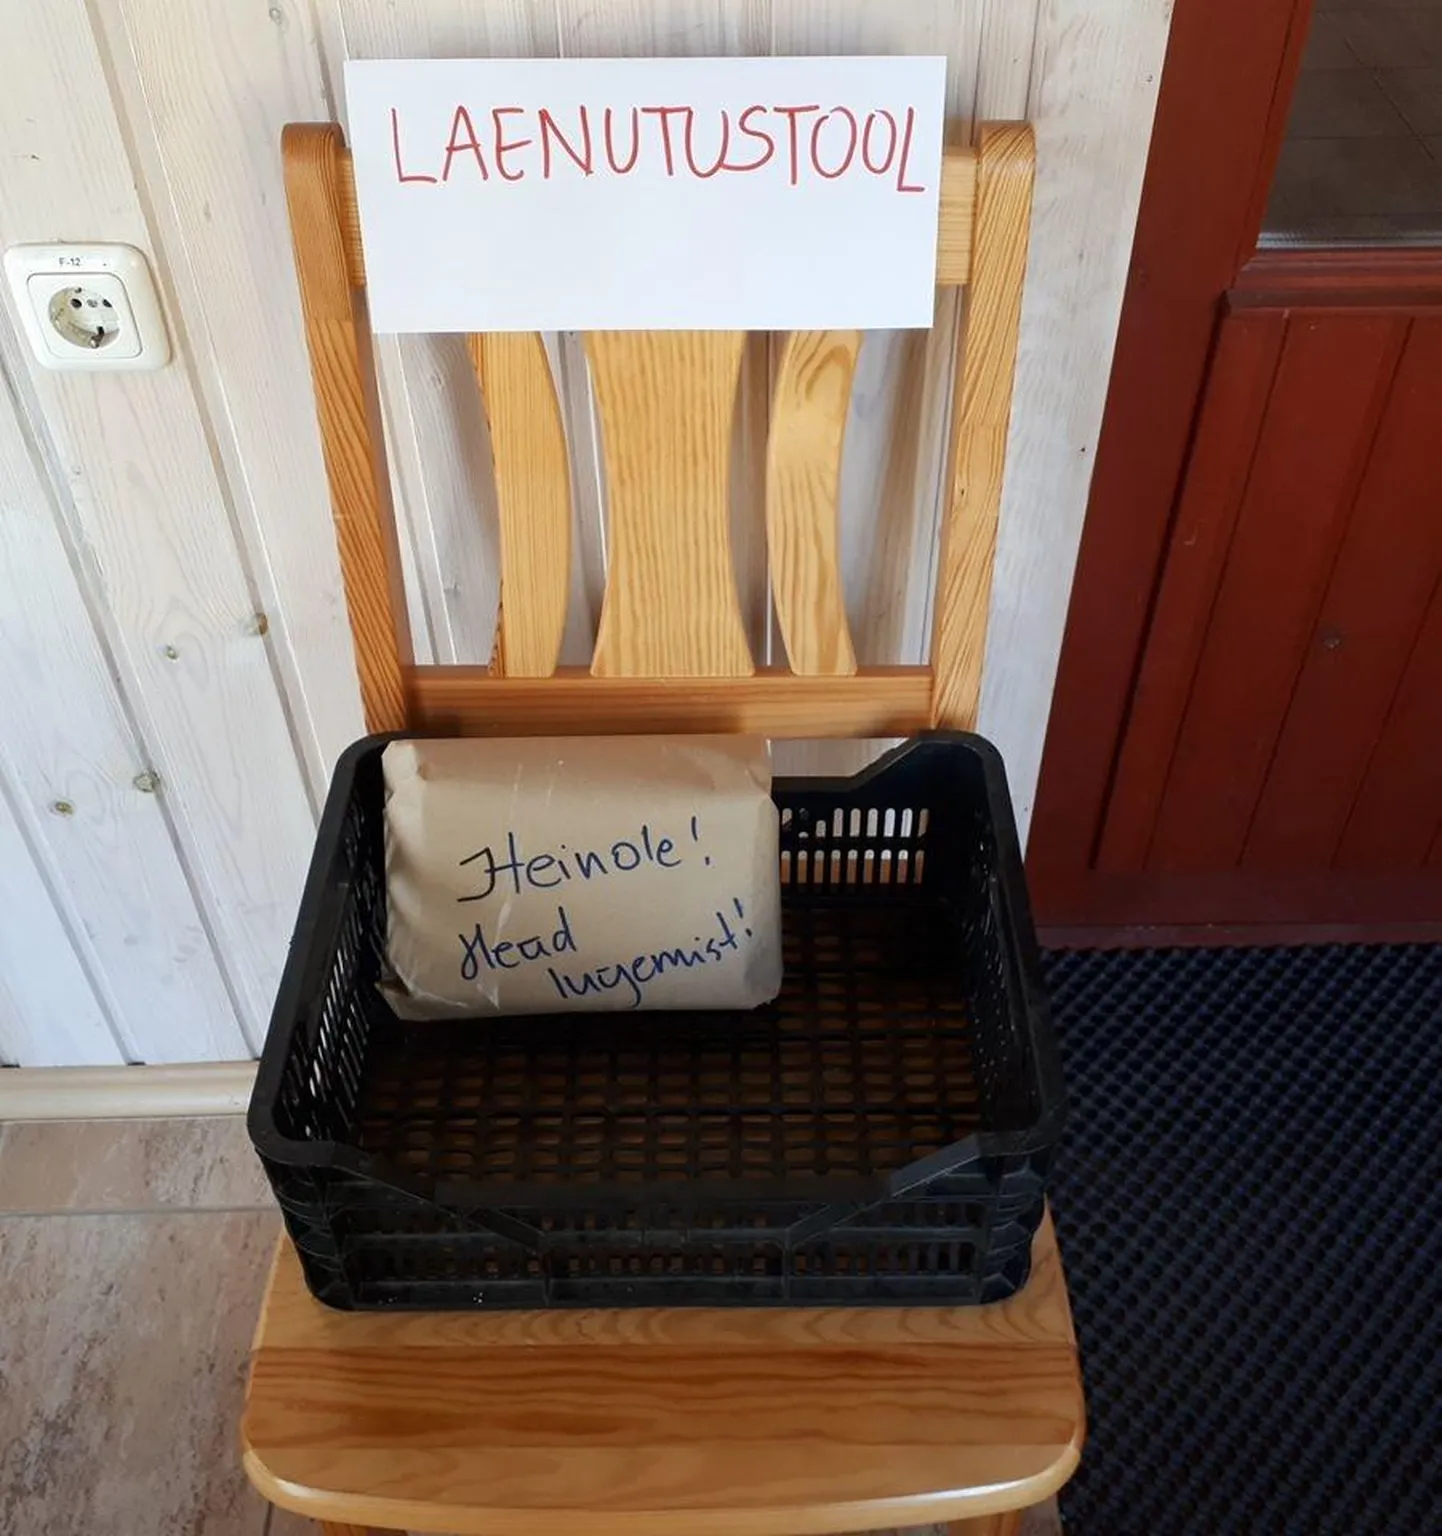 LAENUTUSTOOL
F-12
Heinole!
Head
lugemist!